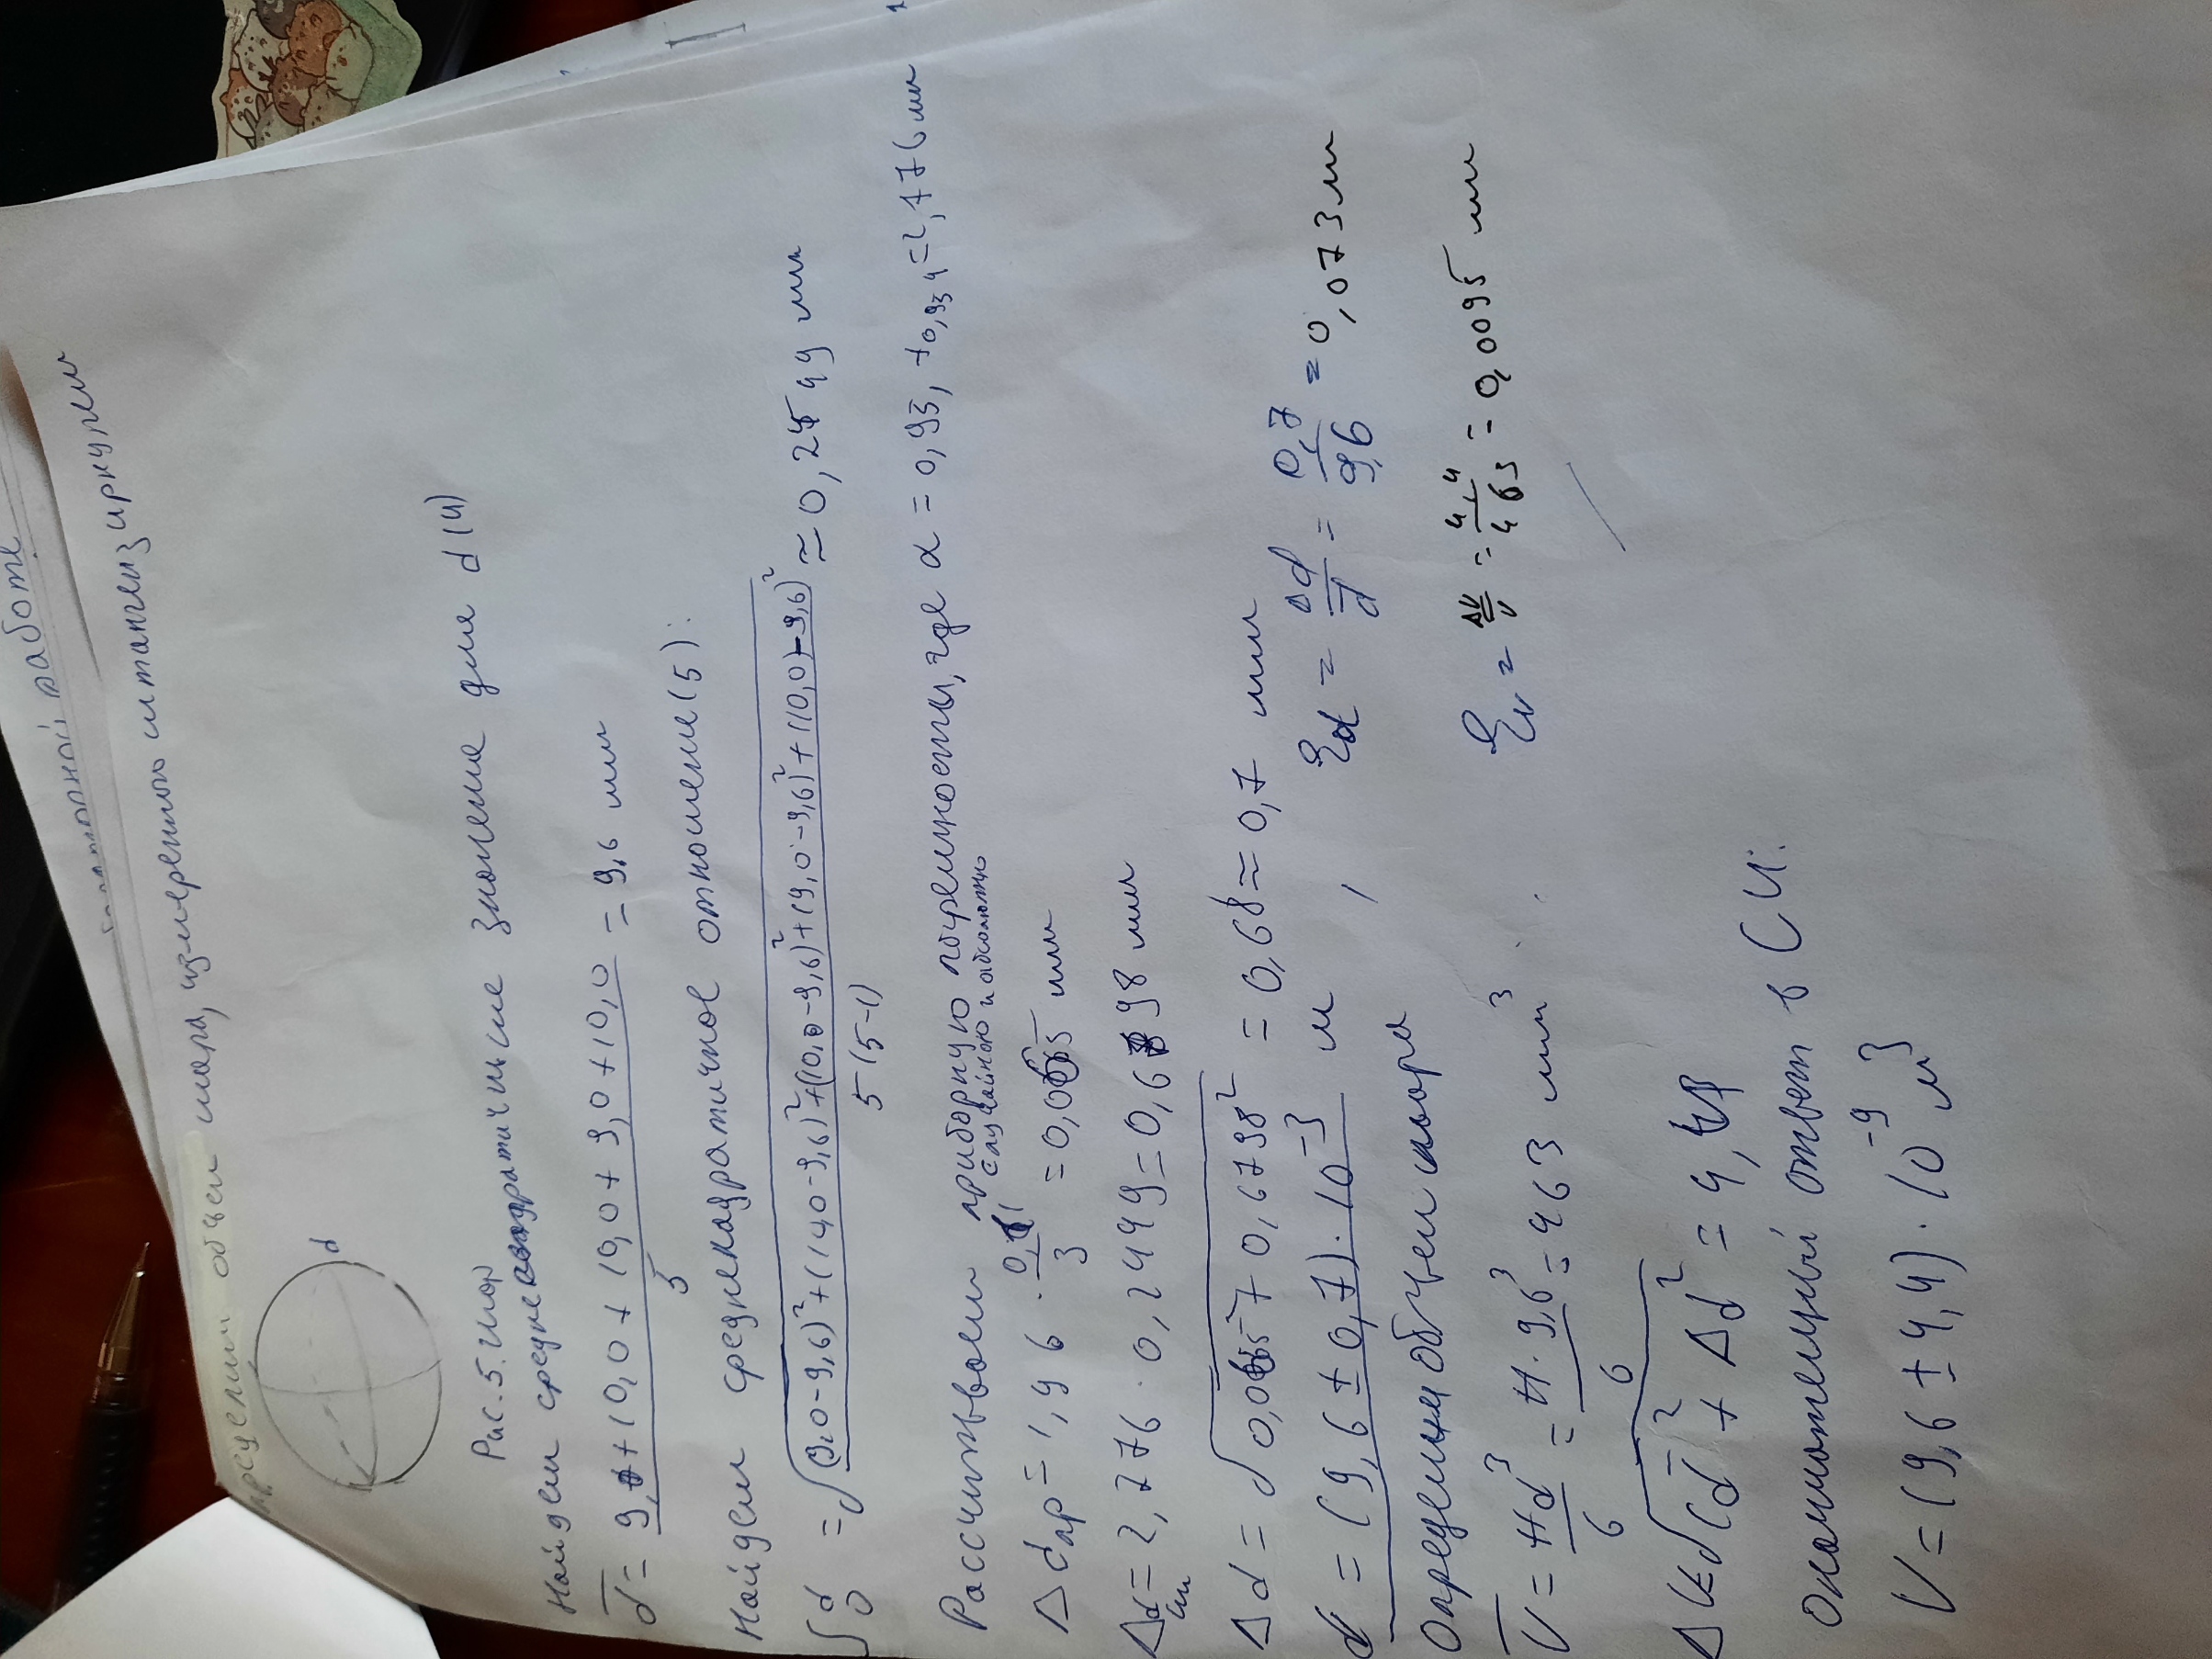 работе
определим объем шара, измеренного штангенциркулем
d
Рис. 5. Шар
Найдем среднеквадратичные значение для d (4)
d̅ = (9,0 + 10,0 + 10,0 + 9,0 + 10,0)/5 = 9,6 мм
Найдем среднекадратичное отношение (5):
S₀ᵈ = √(((9,0-9,6)² + (10,0-9,6)² + (10,0-9,6)² + (9,0-9,6)² + (10,0)-9,6)²)/(5(5-1))) ≈ 0,2499 мм
Рассчитываем приборную погрешность, где α = 0,95, t0,95 4 = 2,776 мм
случайною и абсолютную
Δdпр = 1,96 · 0,01/3 = 0,0065 мм
Δdсл = 2,776 · 0,2449 = 0,6798 мм
Δd = √(0,0065² + 0,6798²) = 0,68 ≈ 0,7 мм
d = (9,6 ± 0,7) · 10⁻³ м , εd = Δd/d̅ = 0,7/9,6 = 0,073 м
Определим объем шара
V̅ = πd³/6 = π·9,6³/6 = 463 мм³ . εv = ΔV/V = 4,4/463 = 0,0095 мм
ΔV = √(d̅² + Δd² = 4,
Окончательный ответ в СИ:
V = (9,6 ± 4,4) · 10⁻⁹ м³